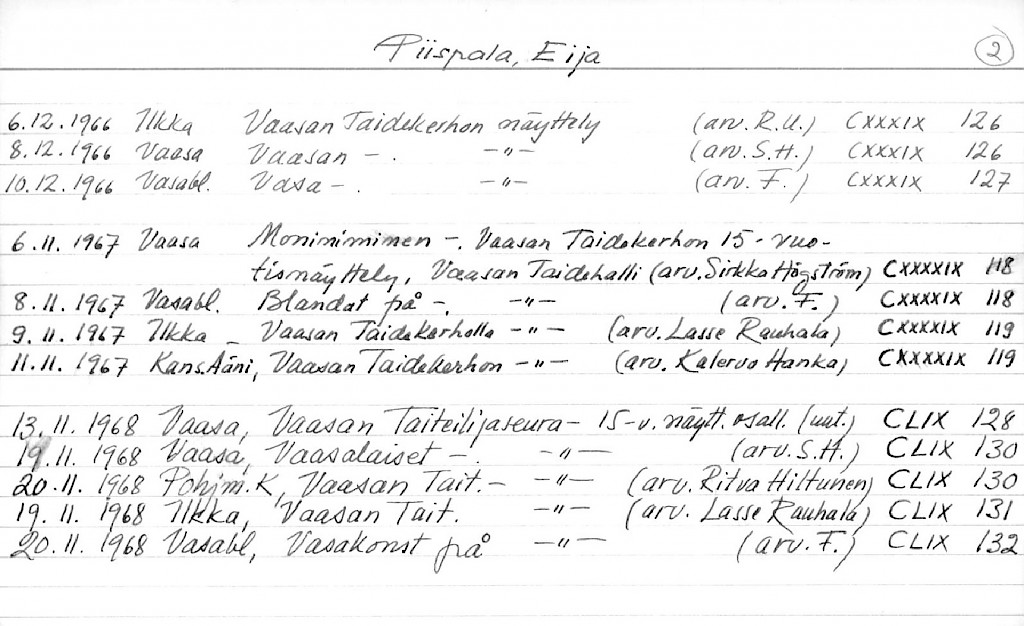 Piispala, Eija 2
6.12.1966 Ilkka Vaasan Taidekerhon näyttely (arv. R.U.) CXXXIX 126
8.12.1966 Vaasa Vaasan - . -"- (arv. S.H.) CXXXIX 126
10.12.1966 Vasabl. Vasa - . -"- (arv. F.) CXXXIX 127
6.11.1967 Vaasa Moninimimen - . Vaasan Taidekerhon 15-vuo-
tisnäyttely, Vaasan Taidehalli (arv. Sirkka Högström) CXXXXIX 118
8.11.1967 Vasabl. Blandat på - . -"- (arv. F.) CXXXXIX 118
9.11.1967 Ilkka - Vaasan Taidekerholla -"- (arv. Lasse Rauhala) CXXXXIX 119
11.11.1967 Kans.Ääni, Vaasan Taidekerhon -"- (arv. Kalervo Hanka) CXXXXIX 119
13.11.1968 Vaasa, Vaasan Taiteilijaseura - 15-v. näytt. osall. (uut.) CLIX 128
19.11.1968 Vaasa, Vaasalaiset - . -"- (arv. S.H.) CLIX 130
20.11.1968 Pohjm.K, Vaasan Tait. - -"- (arv. Ritva Hiltunen) CLIX 130
19.11.1968 Ilkka, Vaasan Tait. -"- (arv. Lasse Rauhala) CLIX 131
20.11.1968 Vasabl, Vasakonst på -"- (arv. F.) CLIX 132